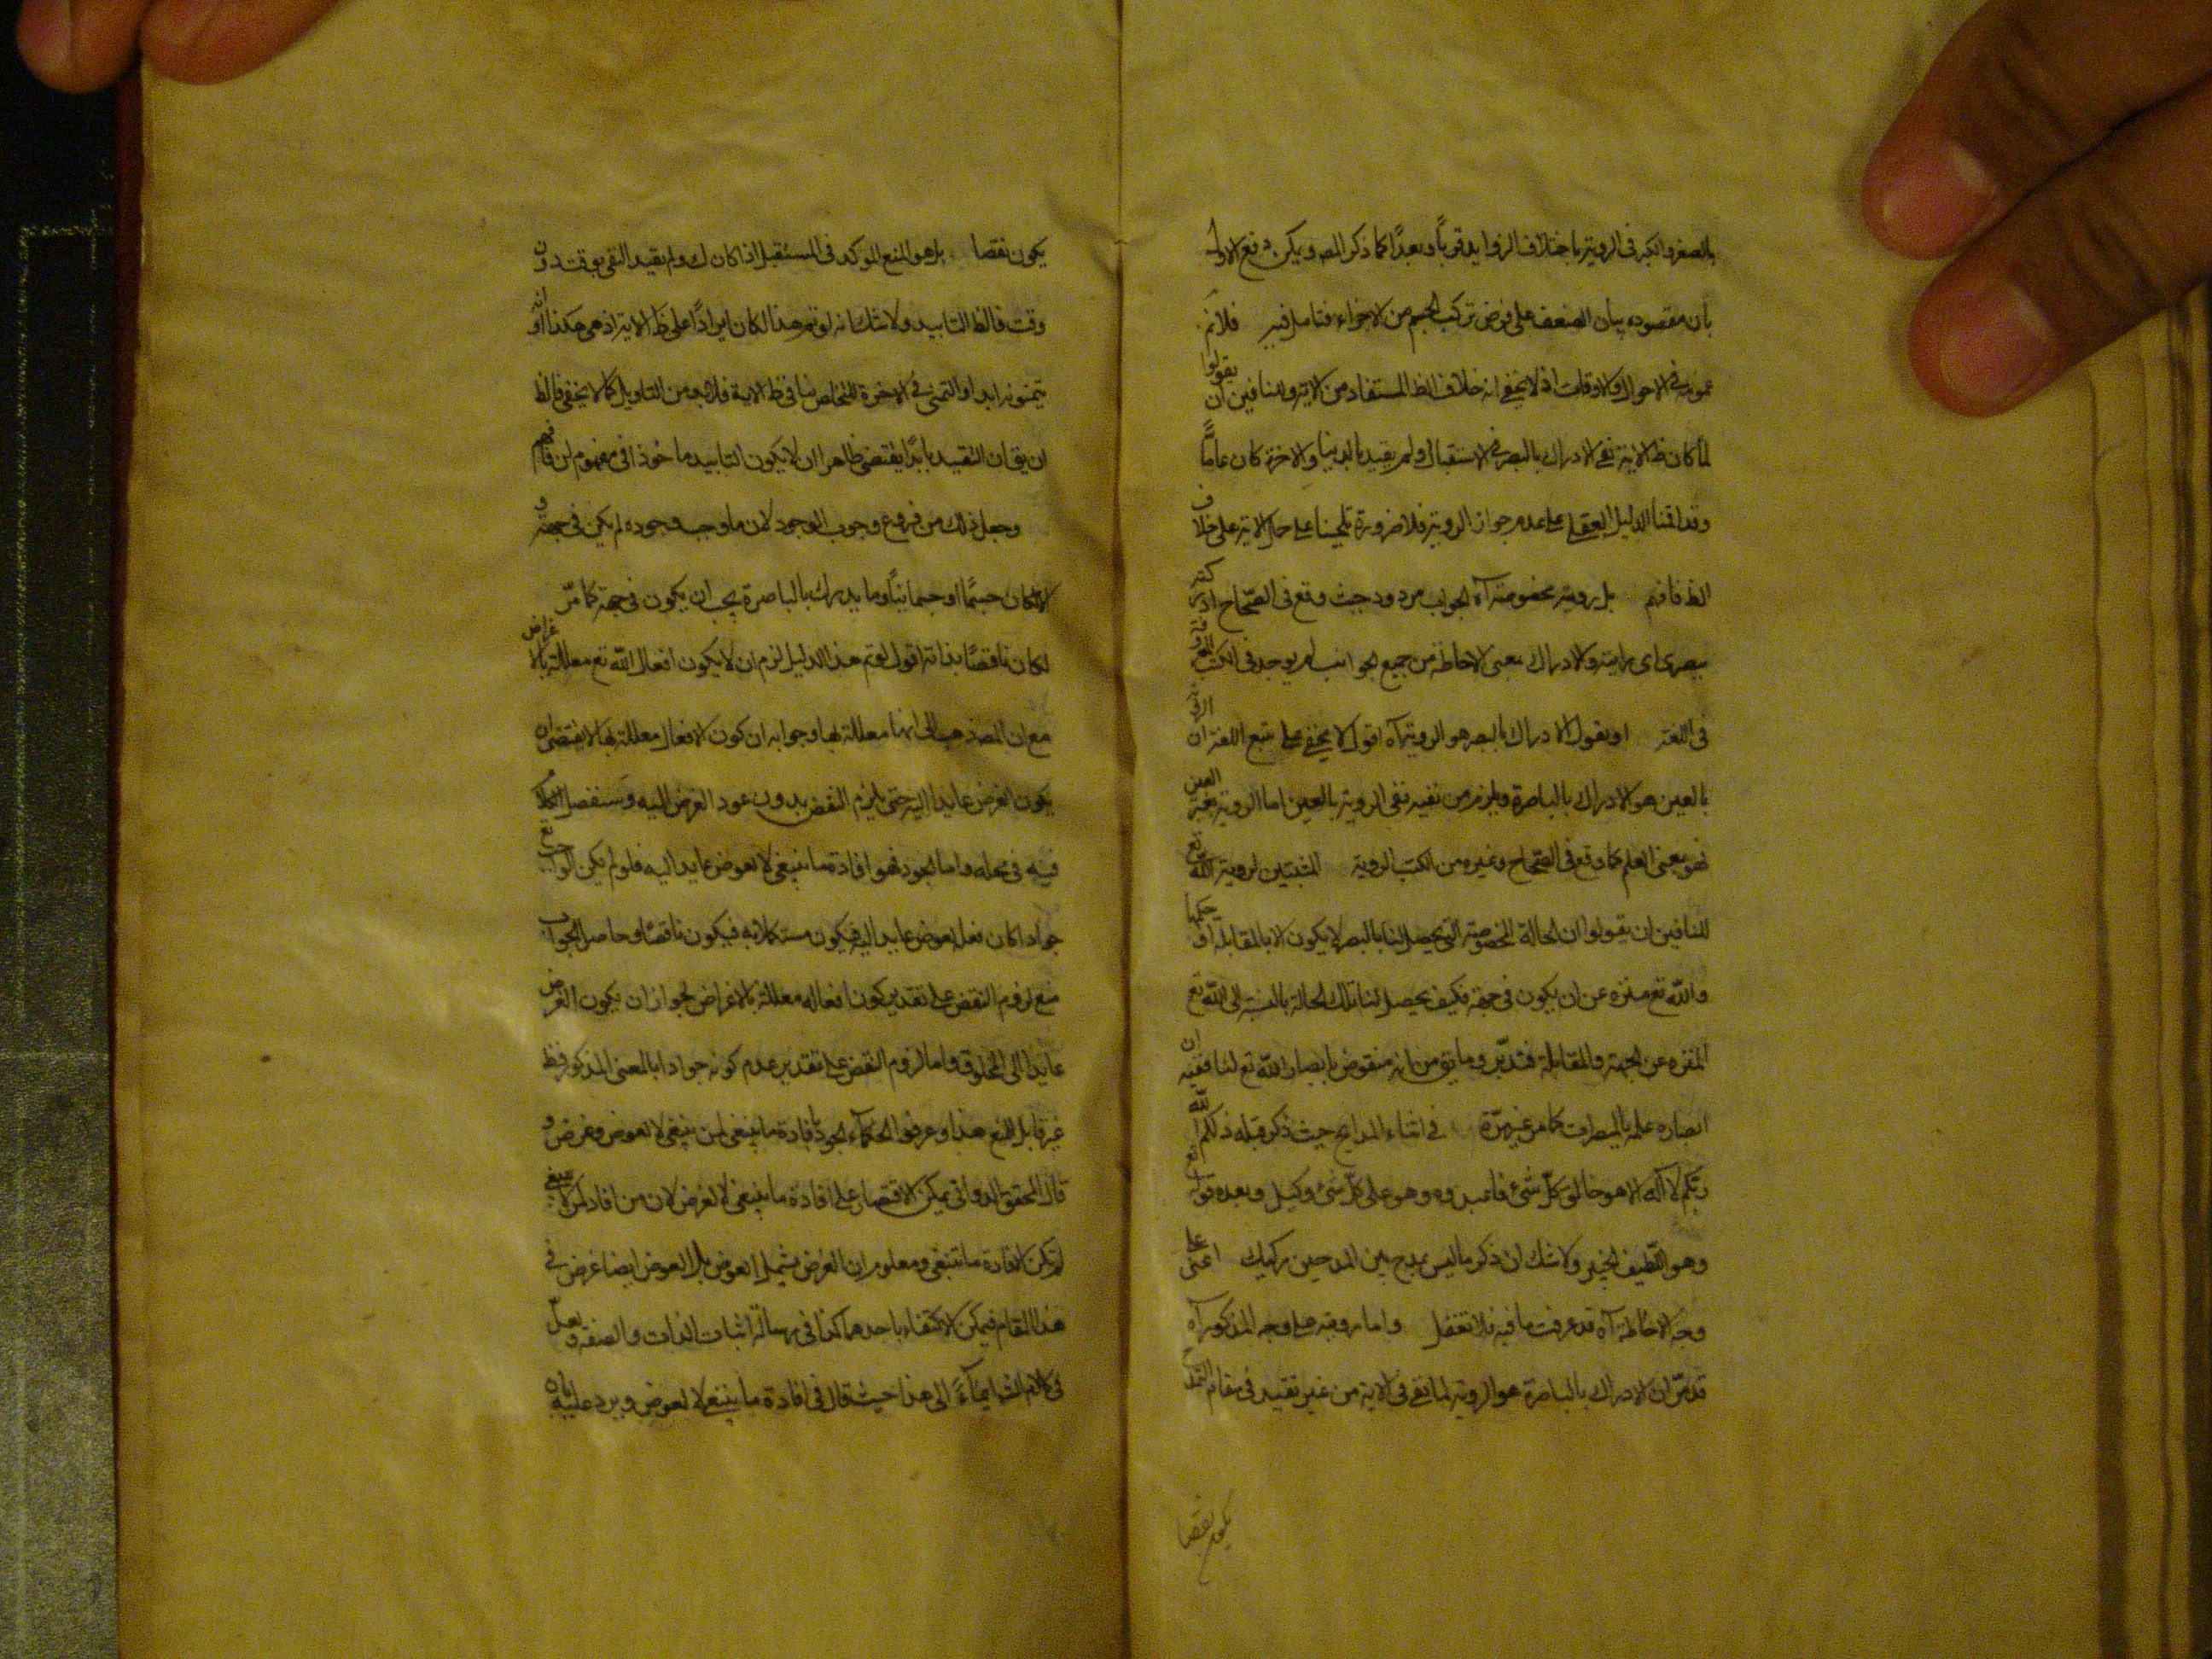 والصغر والكبر فى الروية باختلاف الزوايد قرباً وبعداً كما ذكر المصـ ويمكن دفع الاول
بان مقصوده بيان الضعف على فرض تركب الجسم من الاجزاء فتامل فيه فلانم
عمومه فى الاحوال والاوقات اذ لا يخفى انه خلاف الظ المستفاد من الاية وللنافين ان يقولوا
لما كان ظ الاية نفى الادراك بالبصر فى الاستقبال ولم يقيد بالدنيا والاخرة كان عامّاً
وقد اقمنا الدليل العقلى على عدم جواز الروية فلا ضرورة تلجينا على حمل الاية على خلاف
الظ فافهم بل روية مخصوصة آه الجواب مردود حيث وقع فى الصّحاح ادركته
ببصرى اى رايته والادراك بمعنى الاحاطة من جميع الجوانب لم يوجد فى الكتب
فى اللغة او يقول الادراك بالبصر هو الروية آه اقول لا يخفى على تتبع اللغة ان الروية
بالعين هو الادراك بالباصرة ويلزم من نفيه نفى الروية بالعين اما الروية بغير العين
فهو بمعنى العلم كما وقع فى الصّحاح وغيره من الكتب الروية المثبتين لروية اللّه تع
للنافين ان يقولوا ان الحالة المخصوصة التى يحصل لنا بالبصر لا يكون الا بالمقابلة او حكمها
واللّه تع منزه عن ان يكون فى جهة فكيف يحصل لنا تلك الحالة بالنسبة الى اللّه تع
المنزه عن الجهة والمقابلة فتدبّر وما يق من انه منقوض بابصار اللّه تع لنا ففيه ان
ابصاره علمه بالمبصرات كما مر غير مرّة فى اثناء المدايح حيث ذكر قبله ذلكم اللّه
ربّكم لا اله الا هو خالق كلّ شئ فاعبدوه وهو على كلّ شئ وكيل وبعده قوله تع
وهو اللّطيف الخبير ولا شك ان ذكر ما ليس بمدح بين المدحين ركيك اعنى على
وجه الاحاطة آه قد عرفت ما فيه فلا تغفل واما روية على وجه المذكور آه
قد مرّ ان الادراك بالباصرة هو الروية لما نفى فى الاية من غير تقييد فى مقام التمدح
يكون نقصا
يكون نقصا بل هو المنع الموكد فى المستقبل اذا كان لك ولم يقيد النفى بوقت دون
وقت فالظ التابيد ولا شك انه لو تم هذا لكان ايراداً على ظ الاية اذ هى هكذا انه لو
يتمنونه ابدا والتمنى فى الاخرة للخلاص ينافى ظ الاية فلا بد من التاويل كما لا يخفى فالظ
ان يق ان التقييد بابداً يقتضى ظاهرا ان لا يكون التابيد ماخوذا فى مفهوم لن فافهم
وجعل ذلك من فروع وجوب الوجود لان ما وجب وجوده لم يكن فى جهة و
الا لكان جسمًا او جسمانيّاً وما يدرك بالباصرة يجب ان يكون فى جهة كما مرّ
لكان ناقصًا بذاته اقول لو تم هذا الدليل لزم ان لا يكون افعال اللّه تع معللة بالاغراض
مع ان المصـ ذهب الى انها معللة بها وجوابه ان كون الافعال معللة بها لا يقتضى ان
يكون الغرض عايدا اليه حتى يلزم النقض بدون عود الغرض اليه وسنفصل الكلام
فيه فى محله واما الجود فهو افادة ما ينبغى لا لعوض عايد اليه فلو لم يكن الواجب تع
جوادا كان فعله لعوض عايد اليه فيكون مستكملا به فيكون ناقصًا وحاصل الجواب
منع لزوم النقض على تقدير كون افعاله معللة بالاغراض لجواز ان يكون الغرض
عايدا الى المخلوق واما لزوم النقض على تقدير عدم كونه جوادا بالمعنى المذكور فظ
غير قابل للمنع هذا وعرف الحكماء الجود بافادة ما ينبغى لمن ينبغى لا لعوض وغرض و
قال المحقق الدوانى يمكن الاقتصار على افادة ما ينبغى لا لغرض لان من افاد لمن لا ينبغى
لم يكن لافادة ما ينبغى ومعلوم ان الغرض يشمل العوض بل العوض ايضا غرض فى
هذا المقام فيمكن الاكتفاء باحدهما كذا فى رسالة اثبات الذات والصفة ولعلّ
فى كلام الشـ ايماءً الى هذا حيث قال فى افادة ما ينبغى لا لعوض ويرد عليه